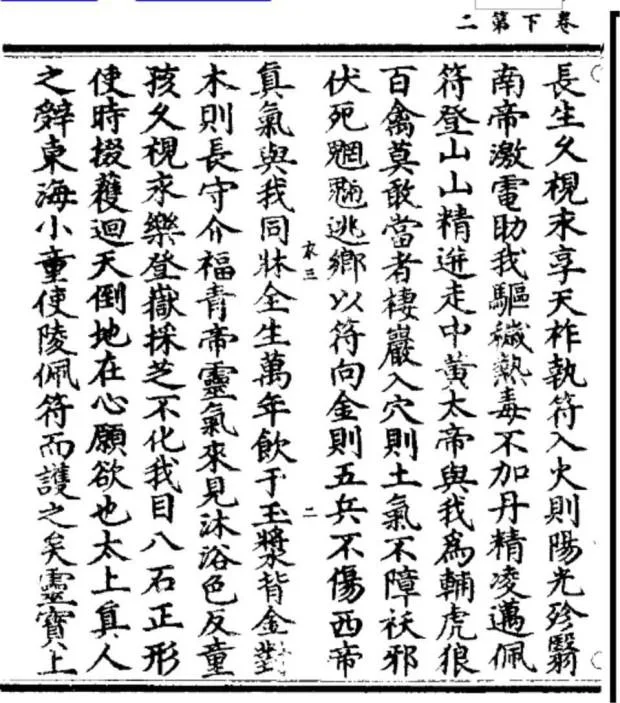 卷下第二
長生久視末享天祚執符入火則陽光殄翳
南帝激電助我驅穢熱毒不加丹精凌邁佩
符登山山精迸走中黃太帝與我爲輔虎狼
百禽莫敢當者棲巖入穴則土氣不障祅邪
伏死魍魎逃鄉以符向金則五兵不傷西帝
衣三
二
眞氣與我同牀全生萬年飲于玉漿背金對
木則長守介福青帝靈氣來見沐浴色反童
孩久視永樂登嶽採芝不化我目八石正形
使時掇蒦迴天倒地在心願欲也太上眞人
之辭東海小童使陵佩符而護之矣靈寶上